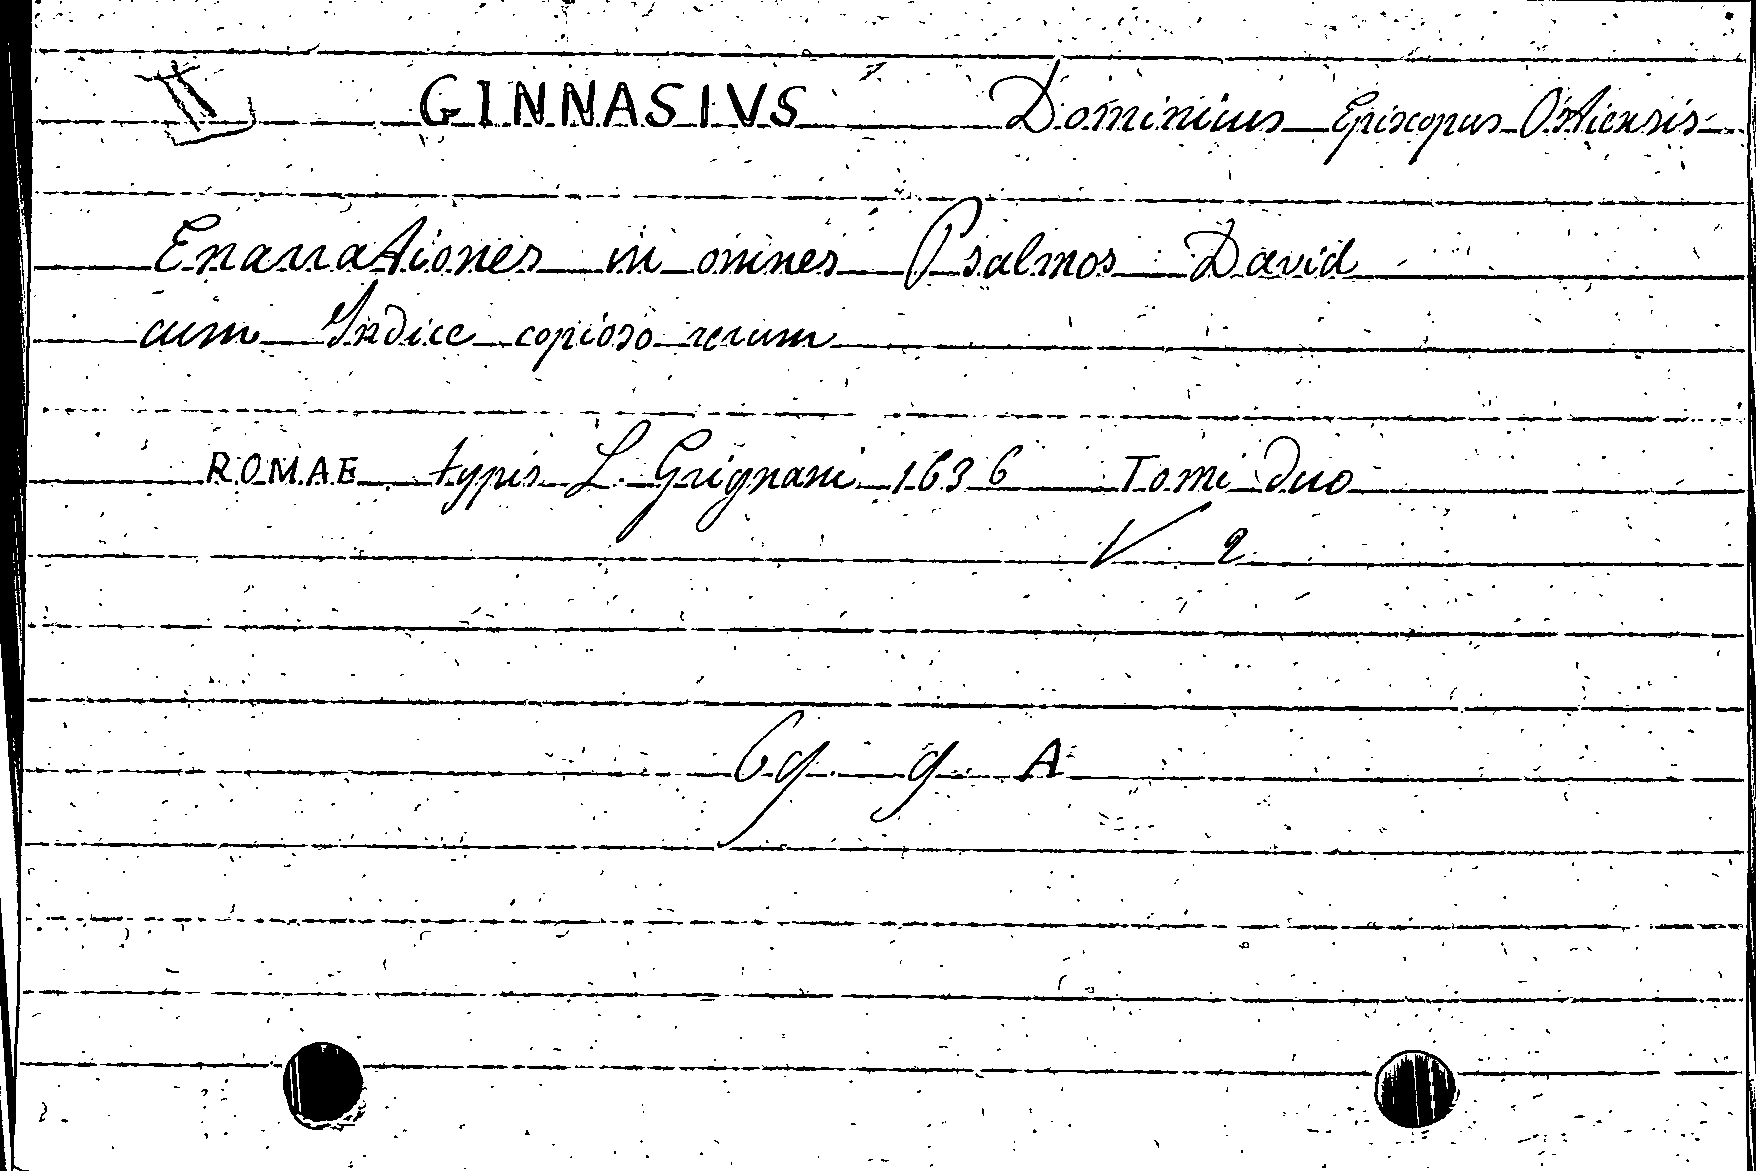 GINNASIVS Dominicus Episcopus Ostiensis
Enarrationes in omnes Psalmos David
cum Indice copioso rerum
ROMAE typis L. Grignani 1636 Tomi duo
V. 2
A